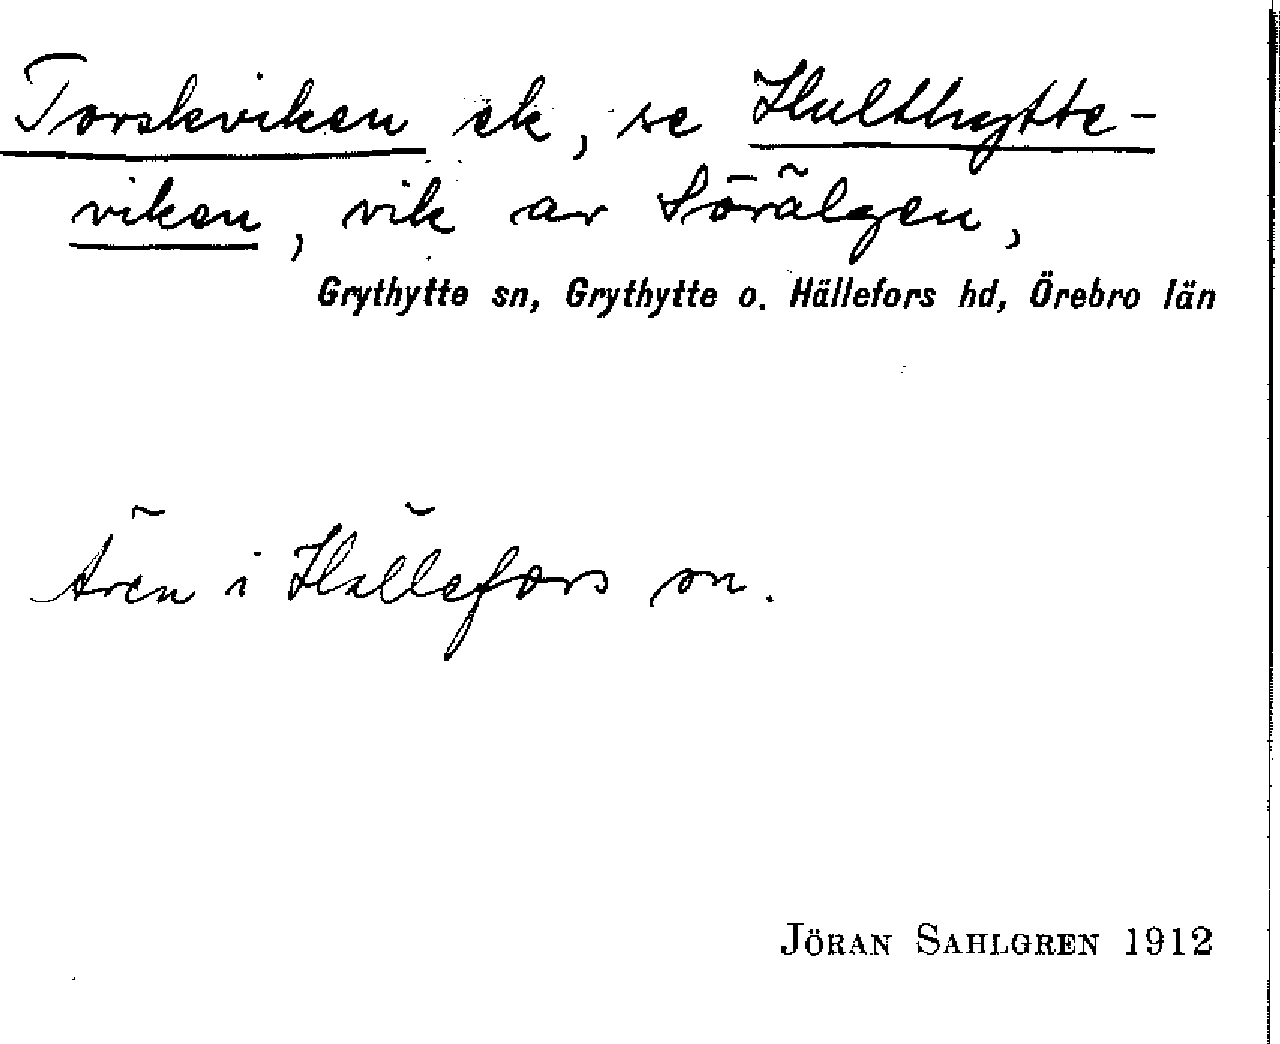 Torskviken ek, se Hulthytte-
viken, vik av Sörälgen,
Grythytte sn, Grythytte o. Hällefors hd, Örebro län
Ären i Hällefors sn.
JÖRAN SAHLGREN 1912